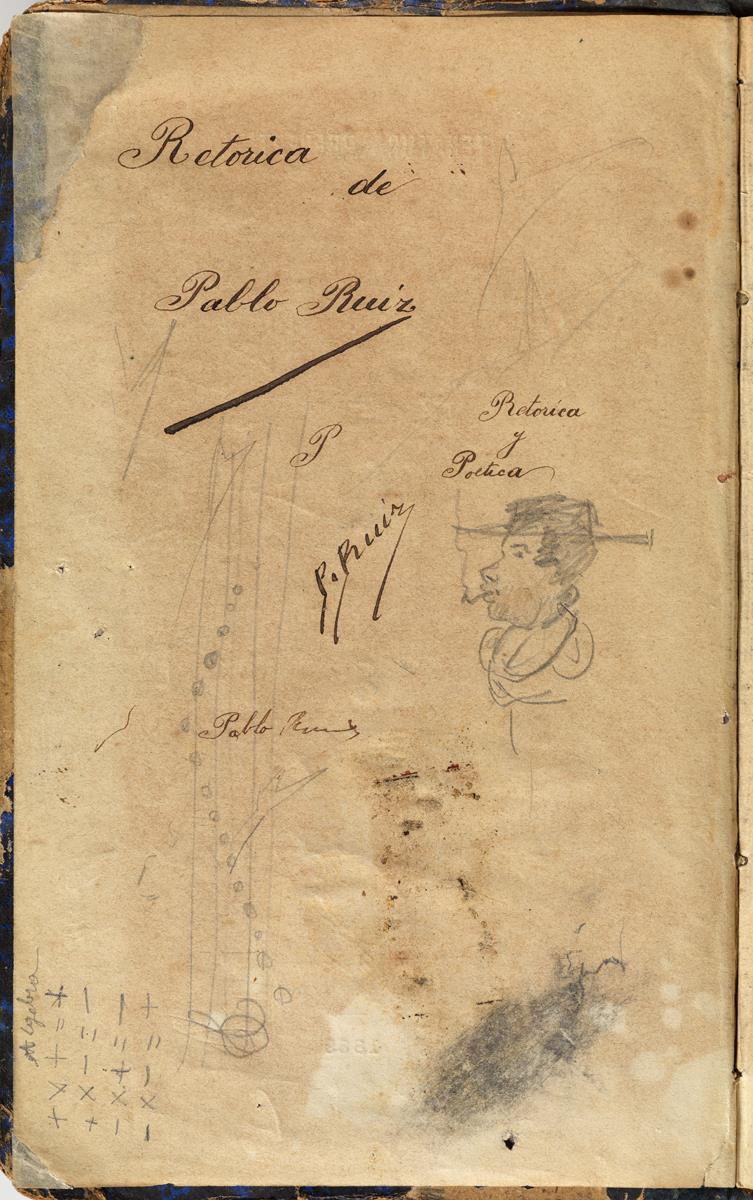 Retorica
de
Pablo Ruiz
P
Retorica
y
Poetica
P. Ruiz
Pablo Ruiz
Algebra
+ x + = +
+ x - = -
- x + = -
- x - = +